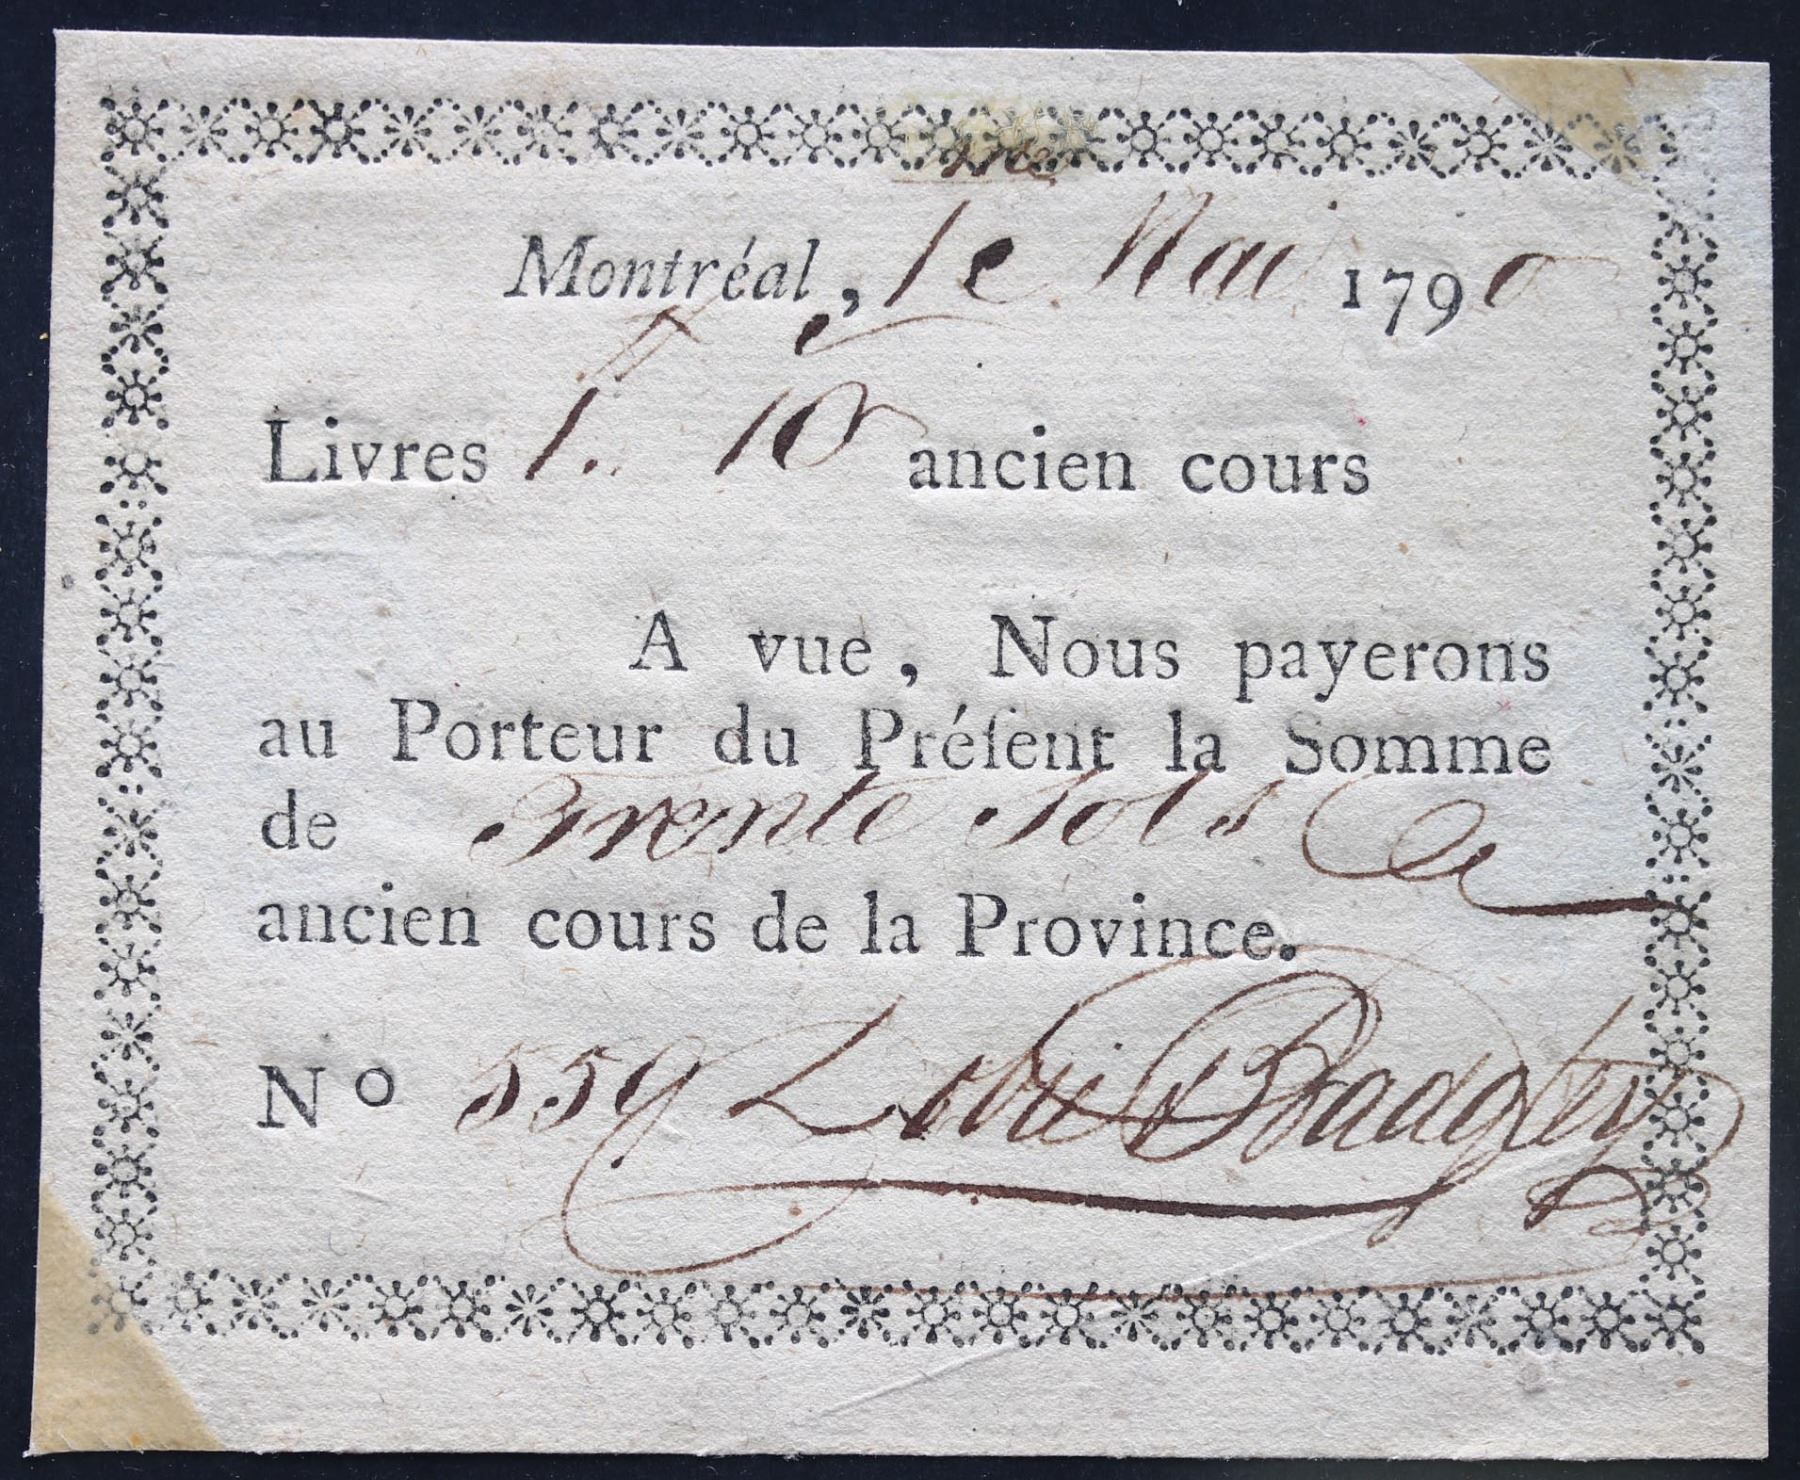 Montréal, 1e. Mai 1790
Livres 1.. 10 ancien cours
A vue, Nous payerons
au Porteur du Préſent la Somme
de Trente Sols
ancien cours de la Province.
No 559 Badgley